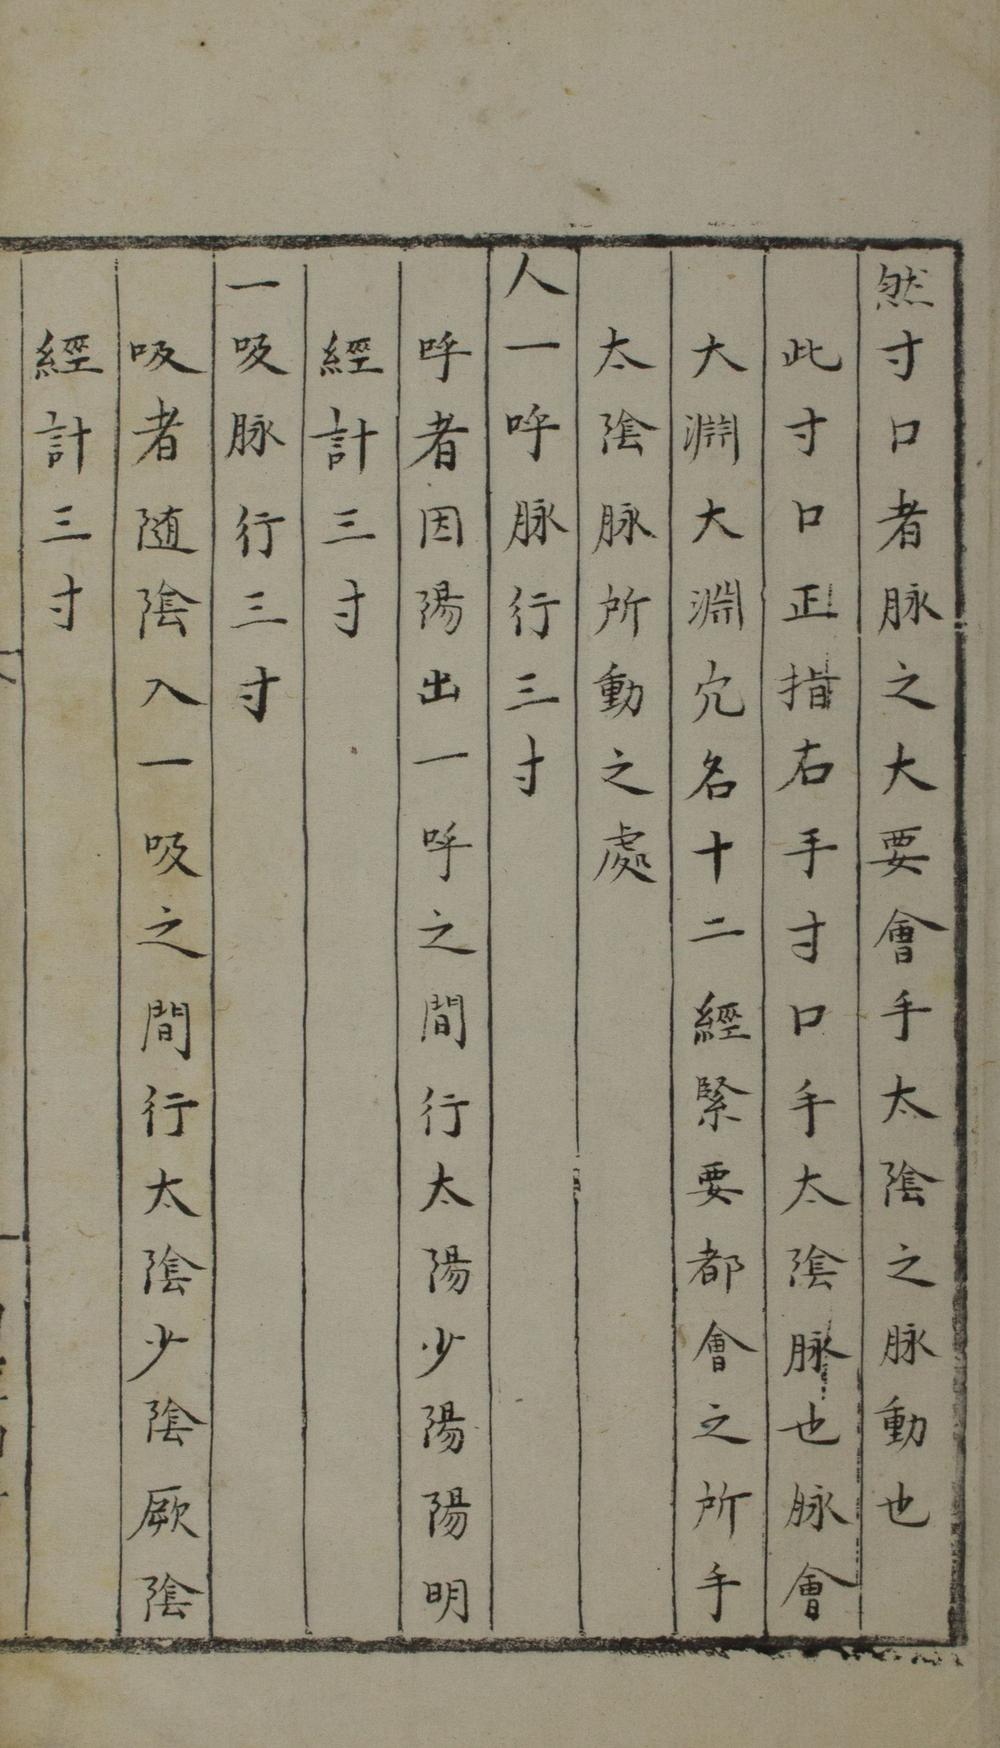 然寸口者脉之大要會手太陰之脉動也
此寸口正指右手寸口手太陰脉也脉會
大淵大淵穴名十二經緊要都會之所手
太陰脉所動之處
人一呼脉行三寸
呼者因陽出一呼之間行太陽少陽陽明
經計三寸
一吸脉行三寸
吸者随陰入一吸之間行太陰少陰厥陰
經計三寸